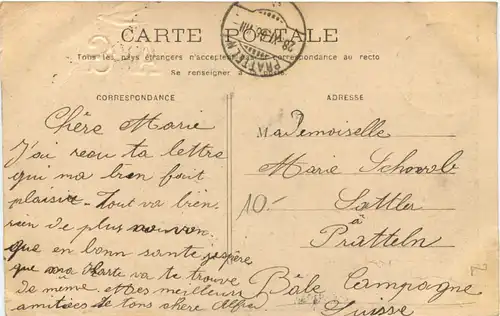 CARTE POSTALE
Tous les pays étrangers n'acceptent pas la correspondance au recto
Se renseigner à la
PRATTELN
28. VIII
CORRESPONDANCE
Chère Marie
J'ai reçu ta lettre
qui ma bien fait
plaisir. Tout va bien
rien de plus nouveau
que en bonne santé j'espère
que ma Carte va te trouve
de même. Mes meilleur
amitiées de tons chère
ADRESSE
MaDemoiselle
Marie
Sattler
à
Pratteln
Bâle Campagne
Suisse
10.-